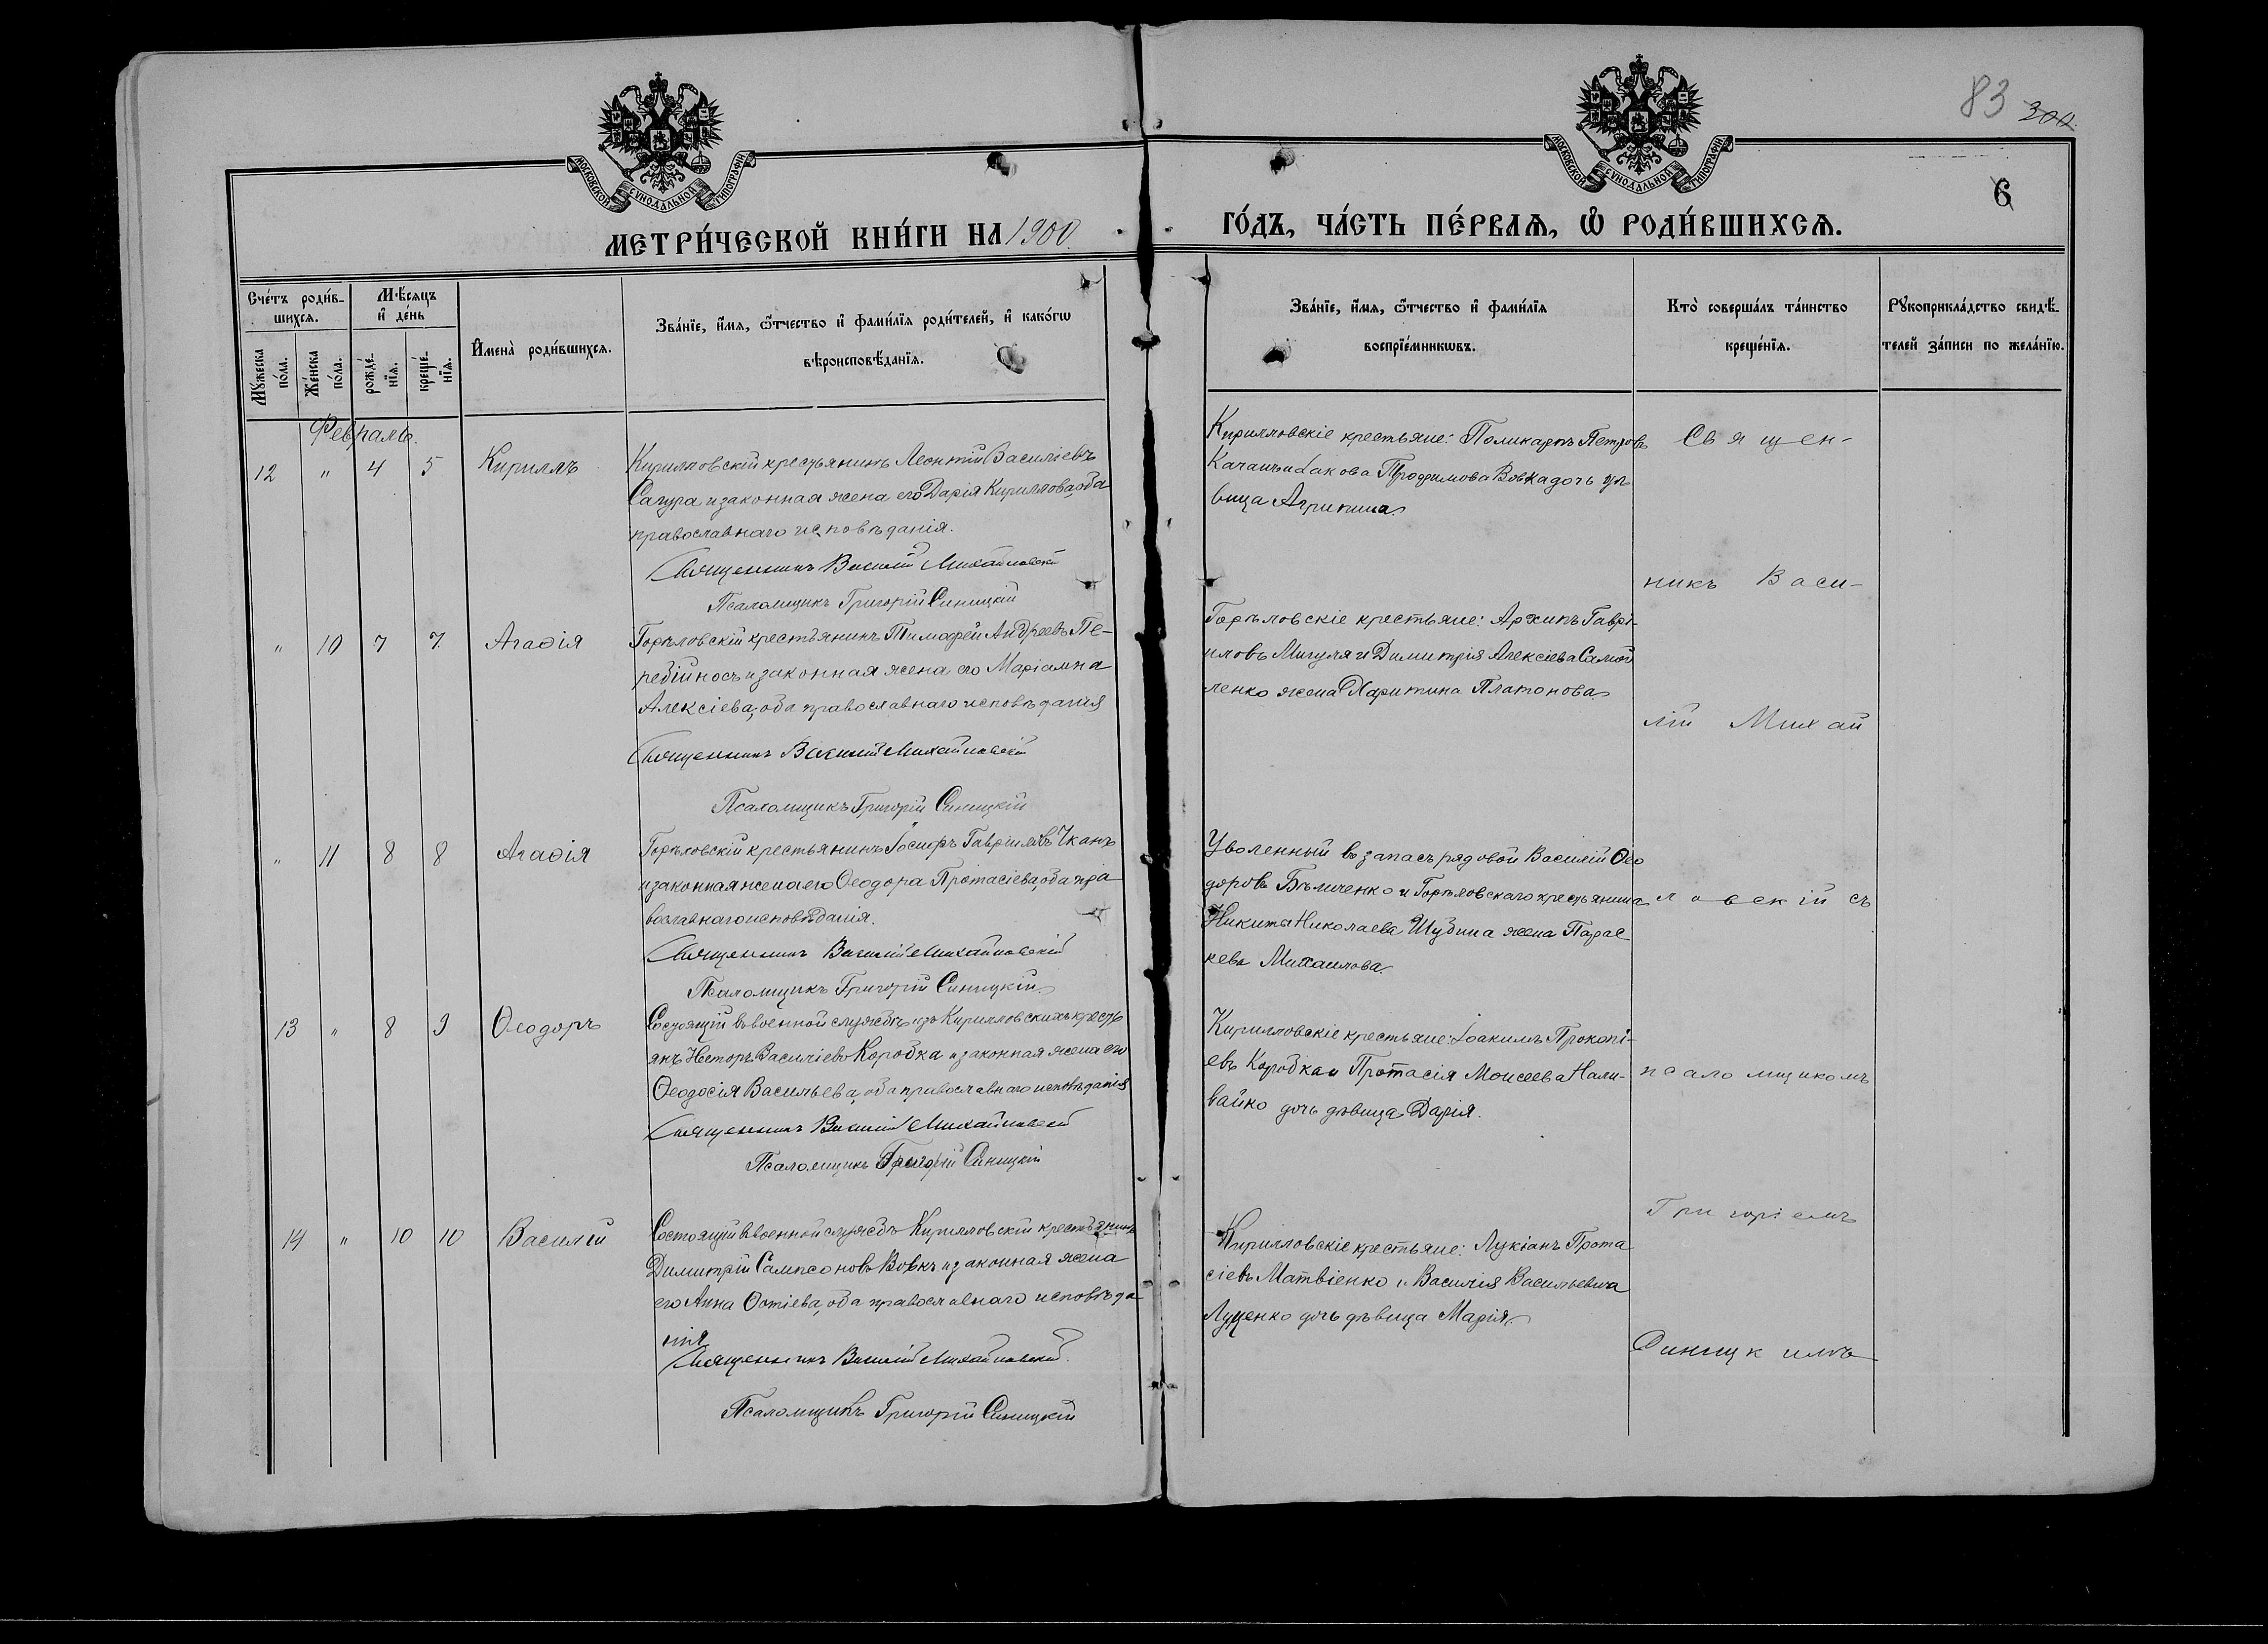 83 300.
МОСКОВСКОЙ СѴНОДАЛЬНОЙ ТИПОГРАФІИ
МОСКОВСКОЙ СѴНОДАЛЬНОЙ ТИПОГРАФІИ
6
МЕТРИ́ЧЕСКОЙ КНИ́ГИ НА 1900 ГО́ДЪ, ЧА́СТЬ ПЕ́РВАѦ, Ѽ РОДИ́ВШИХСѦ.
Сче́тъ роди́в-
шихсѧ.
Мꙋ́жеска
по́ла.
Же́нска
по́ла.
Мѣ́сѧцъ
и҆ де́нь
рожде́-
нїѧ.
креще́-
нїѧ.
И҆мена̀ роди́вшихсѧ.
Зва́нїе, и҆́мѧ, ѻ҆́тчество и҆ фами́лїѧ роди́телей, и҆ како́гѡ
вѣроисповѣ́данїѧ.
Зва́нїе, и҆́мѧ, ѻ҆́тчество и҆ фами́лїѧ
воспрїе́мникѡвъ.
Кто̀ соверша́лъ та́инство
креще́нїѧ.
Рꙋкоприкла́дство свидѣ́-
телей за́писи по жела́нїю.
Февраль.
12 " 4 5 Кириллъ
Кирилловскій крестьянинъ Леонтій Василіевъ
Сагура и законная жена его Дарія Кириллова, оба
православнаго исповѣданія.
Священникъ Василій Михайловскій
Псаломщикъ Григорій Синицкій
Кирилловскіе крестьяне: Поликарпъ Петровъ
Качанъ и Іакова Трофимова Вовка дочь дѣ
вица Агрипина.
" 10 7 7. Агаѳія
Горѣловскій крестьянинъ Тимофей Андреевъ Пе-
ребійносъ и законная жена его Маріамна
Алексіева, оба православнаго исповѣданія
Священникъ Василій Михайловскій
Псаломщикъ Григорій Синицкій
Горѣловскіе крестьяне: Архипъ Гаврі-
иловъ Мигуля и Димитрія Алексіева Самой
ленко жена Харитина Платонова
" 11 8 8 Агаѳія
Горѣловскій крестьянинъ Іосифъ Гавріиловъ Чканъ
и законная жена его Ѳеодора Протасіева, оба пра
вославнаго исповѣданія.
Священникъ Василій Михайловскій
Псаломщикъ Григорій Синицкій
Уволенный въ запасъ рядовой Василій Ѳео
доровъ Бѣличенко и Горѣловскаго крестьянина
Никиты Николаева Шубина жена Парас
кева Михаилова
13 " 8 9 Ѳеодоръ
Состоящій въ военной службѣ изъ Кирилловскихъ кресть
янъ Несторъ Василіевъ Коробка и законная жена его
Ѳеодосія Васильева, оба православнаго исповѣданія
Священникъ Василій Михайловскій
Псаломщикъ Григорій Синицкій
Кирилловскіе крестьяне: Іоакимъ Прокопі-
евъ Коробка и Протасія Моисеева Нали-
вайко дочь дѣвица Дарія.
14 " 10 10 Василій
Состоящій въ военной службѣ Кирилловскій крестьянинъ
Димитрій Сампсоновъ Вовкъ и законная жена
его Анна Фотіева, оба православнаго исповѣда
нія
Священникъ Василій Михайловскій.
Псаломщикъ Григорій Синицкій
Кирилловскіе крестьяне: Лукіанъ Прота
сіевъ Матвіенко и Василія Васильевича
Луценко дочь дѣвица Марія
Священ-
никъ Васи-
лій Михай
ловскій съ
псаломщикомъ
Григоріемъ
Синицкимъ